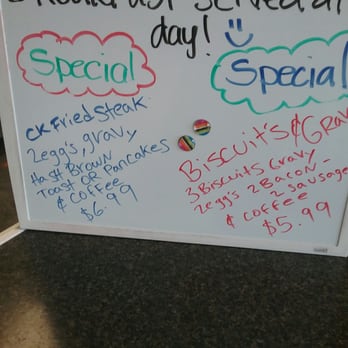 served all
day!
Special
CK Fried Steak
2egg's, gravy
Hash Brown
Toast OR Pancakes
¢ Coffee
$6.99
Special
Biscuit's ¢ Grav
3 Biscuits Gravy
2egg's 2 Bacon -
2 Sausage
¢ Coffee
$5.99